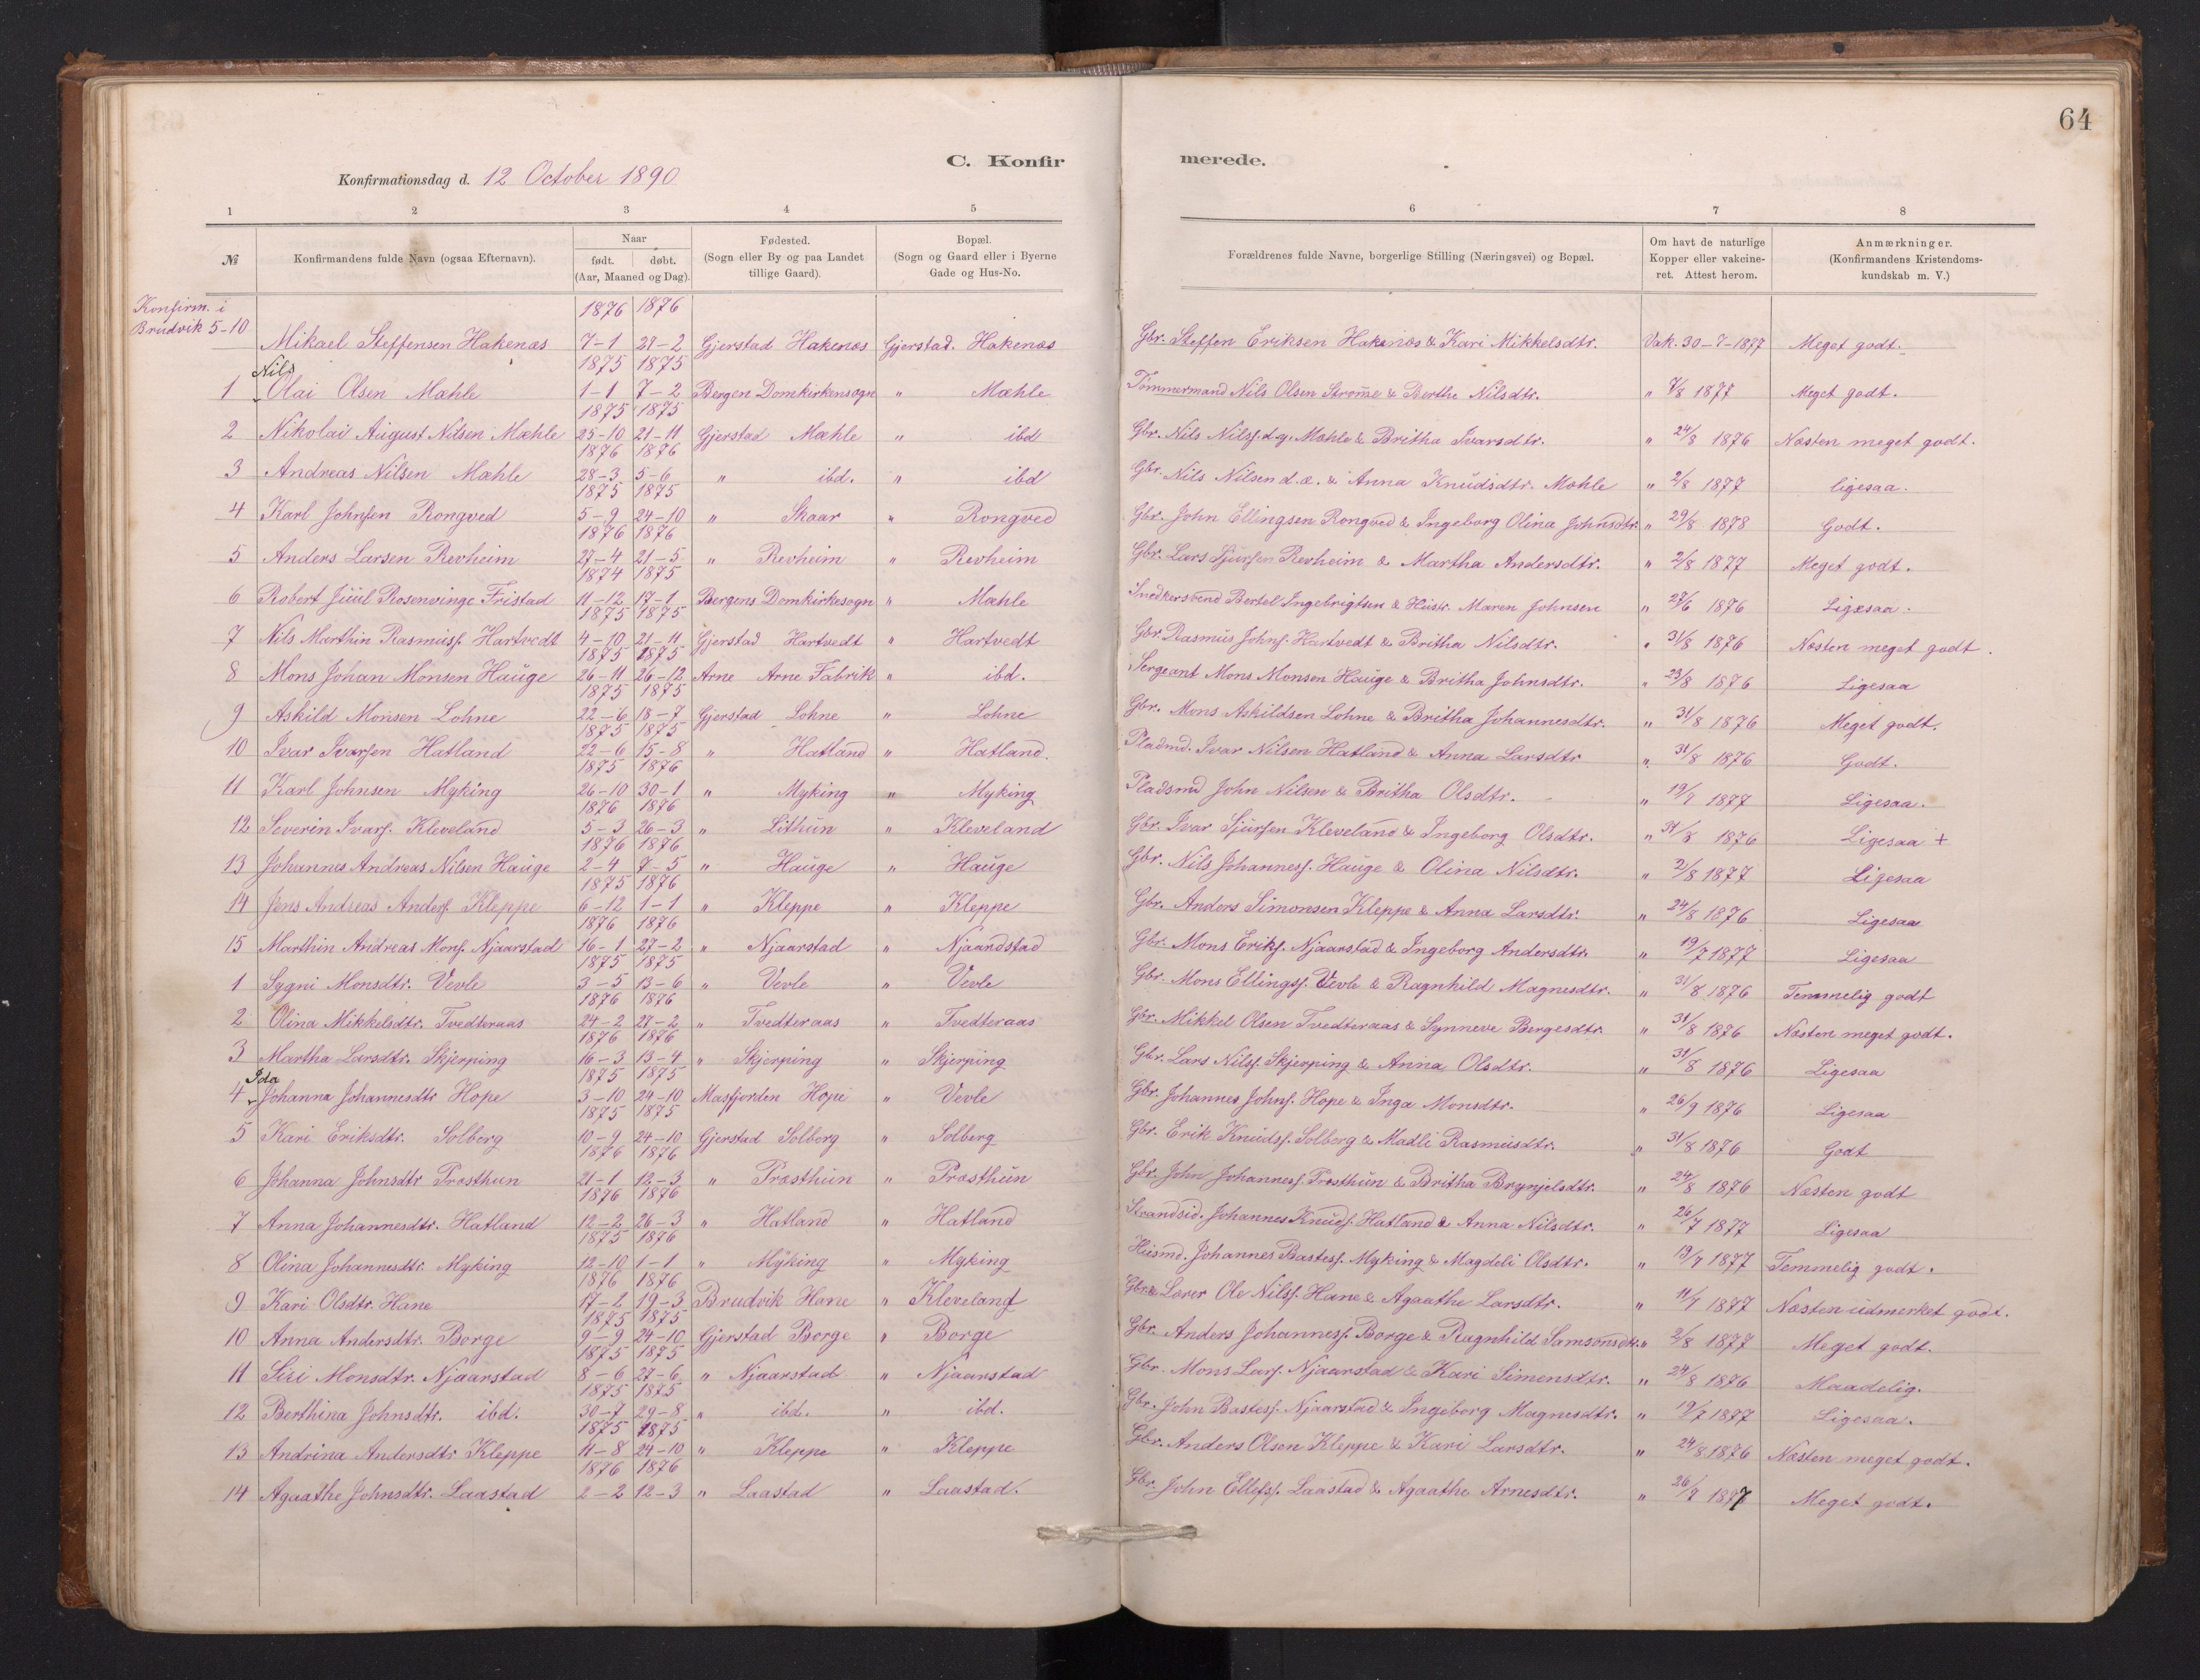 64
C. Konfirmerede.
Konfirmationsdag d. 12 October 1890
1 2 3 4 5 6 7 8
№ Konfirmandens fulde Navn (ogsaa Efternavn). Naar født. døbt. (Aar, Maaned og Dag). Fødested. (Sogn eller By og paa Landet tillige Gaard). Bopæl. (Sogn og Gaard eller i Byerne Gade og Hus-No. Forældrenes fulde Navne, borgerlige Stilling (Næringsvei) og Bopæl. Om havt de naturlige Kopper eller vakcineret. Attest herom. Anmærkninger. (Konfirmandens Kristendomskundskab m. V.)
Konfirm. i Brudvik 5-10 Mikael Steffensen Hakenæs 1876 7-1 1876 28-2 Gjerstad Hakenæs Gjerstad. Hakenæs Gbr. Steffen Eriksen Hakenæs & Kari Mikkelsdtr. Vak. 30-7-1877 Meget godt.
1 Nils Olai Olsen Mæhle 1875 1-1 1875 7-2 Bergen Domkirkensogn " Mæhle Tømmermand Nils Olsen Strøme & Berthe Nilsdtr. " 7/8 1877 Meget godt.
2 Nikolai August Nilsen Mæhle 1875 25-10 1875 21-11 Gjerstad Mæhle " ibd Gbr. Nils Nilsf. d.y. Mæhle & Britha Ivarsdtr. " 24/8 1876 Næsten meget godt.
3 Andreas Nilsen Mæhle 1876 28-3 1876 5-6 " ibd. " ibd Gbr. Nils Nilsen d.æ. & Anna Knudsdtr. Mæhle " 2/8 1877 ligesaa.
4 Karl Johnsen Rongved 1875 5-9 1875 24-10 " Skaar " Rongved Gbr. John Ellingsen Rongved & Ingeborg Olina Johnsdtr. " 29/8 1878 Godt.
5 Anders Larsen Revheim 1876 27-4 1876 21-5 " Revheim " Revheim Gbr. Lars Sjursen Revheim & Martha Andersdtr. " 2/8 1877 Meget godt.
6 Robert Juul Rosenvinge Fristad 1874 11-12 1875 17-1 Bergens Domkirkesogn " Mæhle Snedkersvend Bertel Ingebrigtsen & Hustr. Maren Johnsen " 27/6 1876 Ligesaa.
7 Nils Marthin Rasmusf. Hartvedt 1875 4-10 1875 21-11 Gjerstad Hartvedt " Hartvedt Gbr. Rasmus Johnf. Hartvedt & Britha Nilsdtr. " 31/8 1876 Næsten meget godt.
8 Mons Johan Monsen Hauge 1875 26-11 1875 26-12 Arne Arne Fabrik " ibd. Sergeant Mons Monsen Hauge & Britha Johnsdtr. " 23/8 1876 Ligesaa
9 Askild Monsen Lohne 1875 22-6 1875 18-7 Gjerstad Lohne " Lohne Gbr. Mons Askildsen Lohne & Britha Johannesdtr. " 31/8 1876 Meget godt.
10 Ivar Ivarsen Hatland 1875 22-6 1875 15-8 " Hatland " Hatland. Pladsmd. Ivar Nilsen Hatland & Anna Larsdtr " 31/8 1876 Godt.
11 Karl Johnsen Myking 1875 26-10 1876 30-1 " Myking " Myking Pladsmd John Nilsen & Britha Olsdtr. " 19/7 1877 Ligesaa.
12 Severin Ivarf. Kleveland 1876 5-3 1876 26-3 " Lithun " Kleveland Gbr. Ivar Sjursen Kleveland & Ingeborg Olsdtr. " 31/8 1876 Ligesaa +
13 Johannes Andreas Nilsen Hauge 1876 2-4 1876 7-5 " Hauge " Hauge Gbr. Nils Johannesf. Hauge & Olina Nilsdtr. " 2/8 1877 Ligesaa
14 Jens Andreas Andersf. Kleppe 1875 6-12 1876 1-1 " Kleppe " Kleppe Gbr. Anders Simonsen Kleppe & Anna Larsdtr. " 24/8 1876 Ligesaa
15 Marthin Andreas Monsf. Njaarstad 1876 16-1 1876 27-2 " Njaarstad " Njaandstad Gbr. Mons Eriksf. Njaarstad & Ingeborg Andersdtr. " 19/7 1877 Ligesaa
1 Sygni Monsdtr. Vevle 1875 3-5 1875 13-6 " Vevle " Vevle Gbr. Mons Ellingsf. Vevle & Ragnhild Magnesdtr. " 31/8 1876 Temmelig godt
2 Olina Mikkelsdtr. Tvedteraas 1876 24-2 1876 27-2 " Tvedteraas " Tvedteraas Gbr. Mikkel Olsen Tvedteraas & Synneve Bergesdtr. " 31/8 1876 Næsten meget godt.
3 Martha Larsdtr. Skjerping 1876 16-3 1876 13-4 " Skjerping " Skjerping Gbr. Lars Nilsf. Skjerping & Anna Olsdtr. " 31/8 1876 Ligesaa
4 Ida Johanna Johannesdtr Hope 1875 3-10 1875 24-10 Masfjorden Hope " Vevle Gbr. Johannes Johnf. Hope & Inga Monsdtr. " 26/9 1876 Ligesaa
5 Kari Eriksdtr. Solberg 1875 10-9 1875 24-10 Gjerstad Solberg " Solberg Gbr. Erik Knudsf. Solberg & Madli Rasmusdtr. " 31/8 1876 Godt
6 Johanna Johnsdtr Præsthun 1876 21-1 1876 12-3 " Præsthun " Præsthun Gbr. John Johannesf. Præsthun & Britha Brynjelsdtr. " 24/8 1876 Næsten godt
7 Anna Johannesdtr. Hatland 1876 12-2 1876 26-3 " Hatland " Hatland Strandsid. Johannes Knudsf. Hatland & Anna Nilsdtr. " 26/7 1877 Ligesaa
8 Olina Johannesdtr. Myking 1875 12-10 1876 1-1 " Myking " Myking Husmd. Johannes Bastesf. Myking & Magdeli Olsdtr. " 19/7 1877 Temmelig godt.
9 Kari Olsdtr. Hane 1876 17-2 1876 19-3 Brudvik Hane " Kleveland Gbr. & Lærer Ole Nilsf. Hane & Agaathe Larsdtr. " 11/7 1877 Næsten udmerket godt.
10 Anna Andersdtr. Borge 1875 9-9 1875 24-10 Gjerstad Borge " Borge Gbr. Anders Johannesf. Borge & Ragnhild Samsonsdtr. " 2/8 1877 Meget godt.
11 Siri Monsdtr. Njaarstad 1875 8-6 1875 27-6 " Njaarstad " Njaarstad Gbr. Mons Larsf. Njaarstad & Kari Simensdtr. " 24/8 1876 Maadelig.
12 Berthina Johnsdtr. ibd. 1875 30-7 1875 29-8 " ibd. " ibd. Gbr. John Bastesf. Njaarstad & Ingeborg Magnesdtr. " 19/7 1877 Ligesaa.
13 Andrina Andersdtr Kleppe 1875 11-8 1875 24-10 " Kleppe " Kleppe Gbr. Anders Olsen Kleppe & Kari Larsdtr. " 24/8 1876 Næsten meget godt.
14 Agaathe Johnsdtr. Laastad 1876 2-2 1876 12-3 " Laastad " Laastad. Gbr. John Ellefsf. Laastad & Agaathe Arnesdtr. " 26/7 1877 Meget godt.